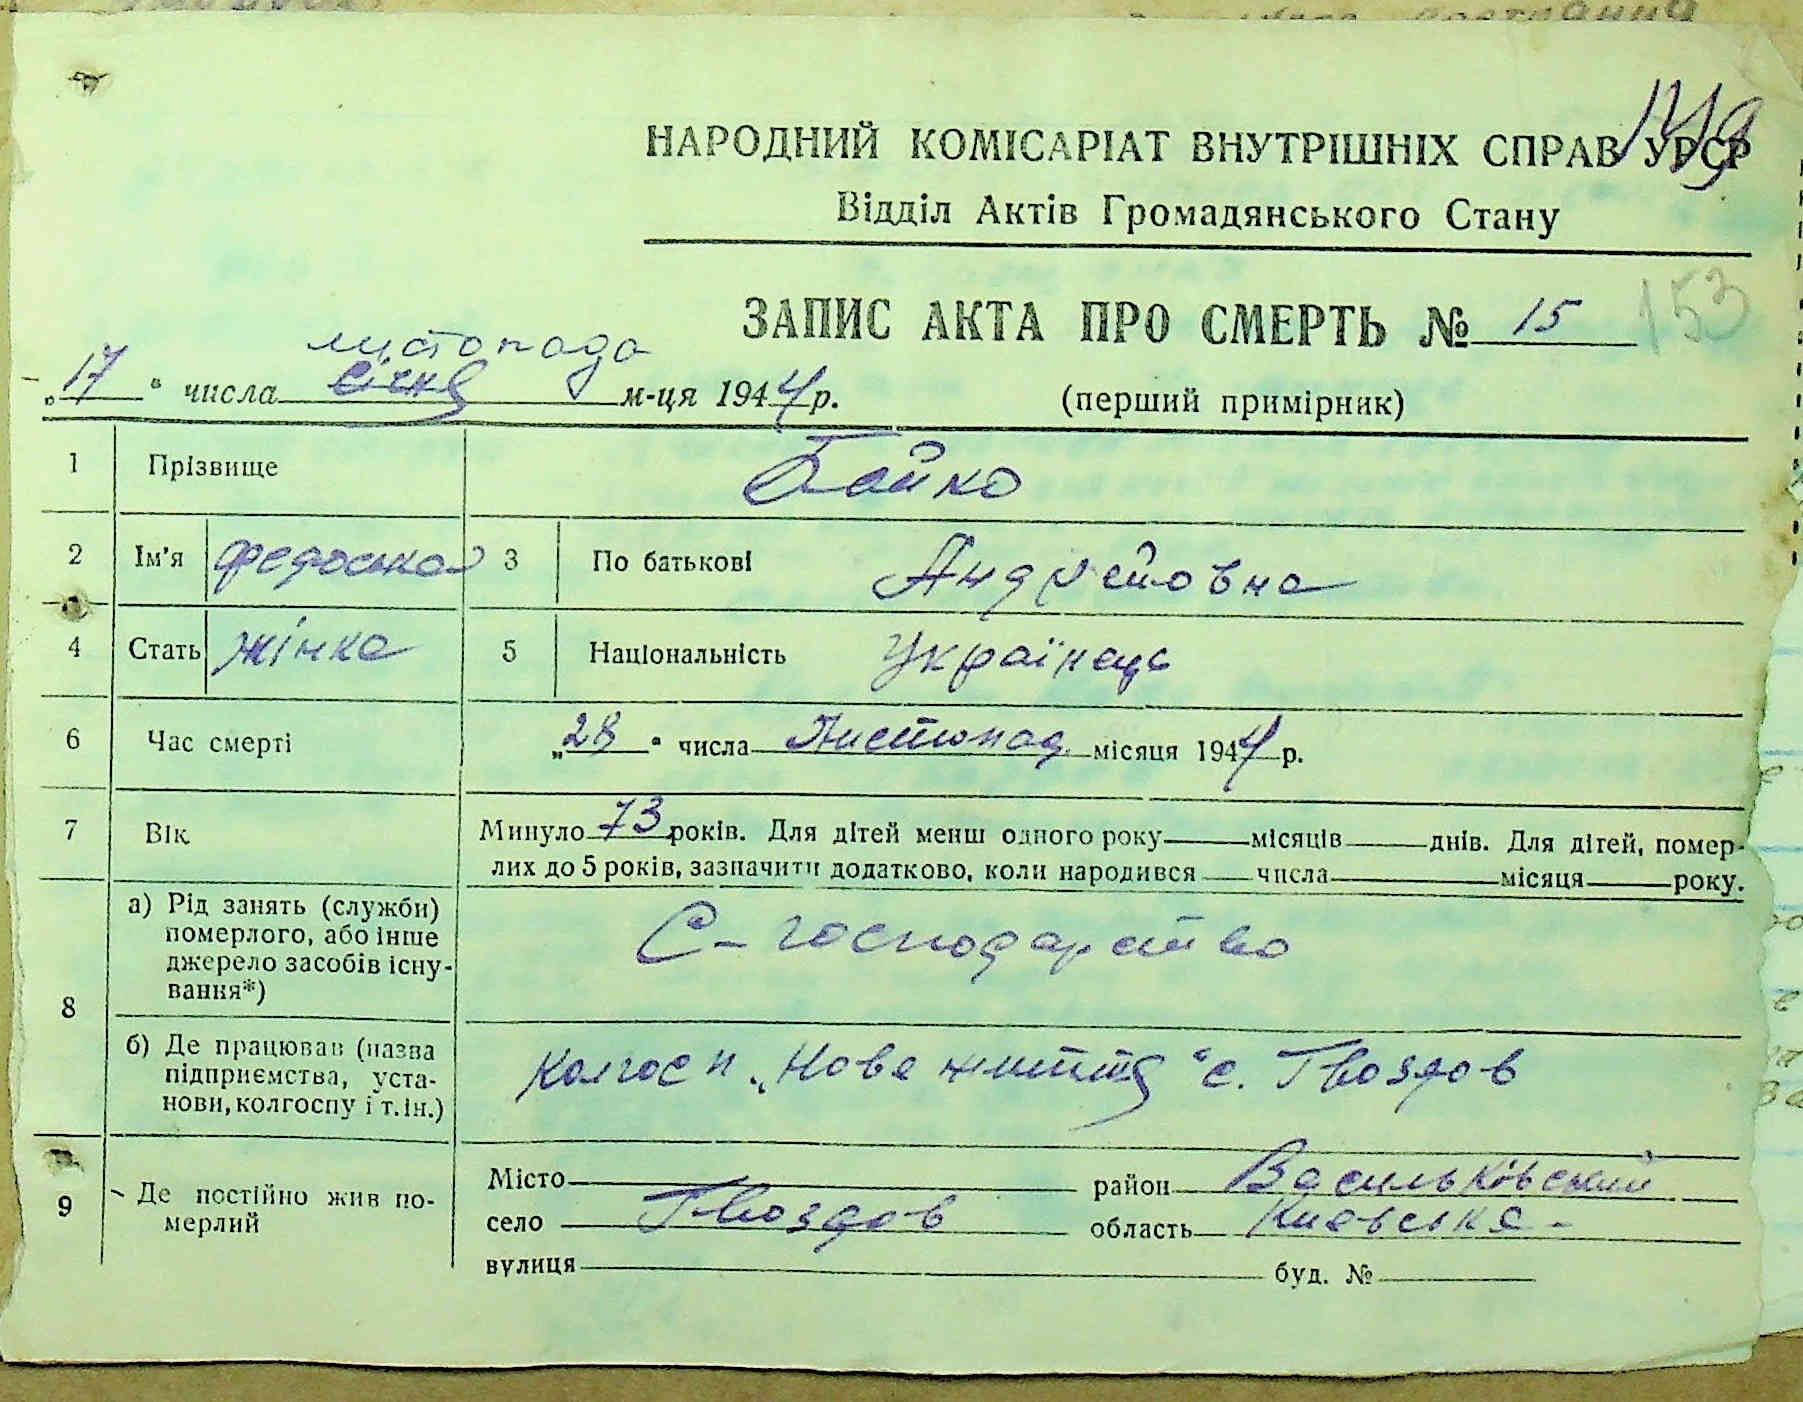 149
НАРОДНИЙ КОМІСАРІАТ ВНУТРІШНІХ СПРАВ УРСР
Відділ Актів Громадянського Стану
ЗАПИС АКТА ПРО СМЕРТЬ № 15
153
листопада
„17“ числа січня м-ця 1944 р. (перший примірник)
1 Прізвище Бойко
2 Ім'я Федоська 3 По батькові Андрейовна
4 Стать жінка 5 Національність Українець
6 Час смерті „28“ числа Листопад місяця 1944 р.
7 Вік Минуло 73 років. Для дітей менш одного року місяців днів. Для дітей, помер-
лих до 5 років, зазначити додатково, коли народився числа місяця року.
8 а) Рід занять (служби)
померлого, або інше
джерело засобів існу-
вання*)
С-господарство
б) Де працював (назва
підприємства, уста-
нови, колгоспу і т. ін.)
Колгосп „Нове життя“ с. Гвоздов
9 Де постійно жив по-
мерлий
Місто район Васильківський
село Гвоздов область Киевська
вулиця буд. №